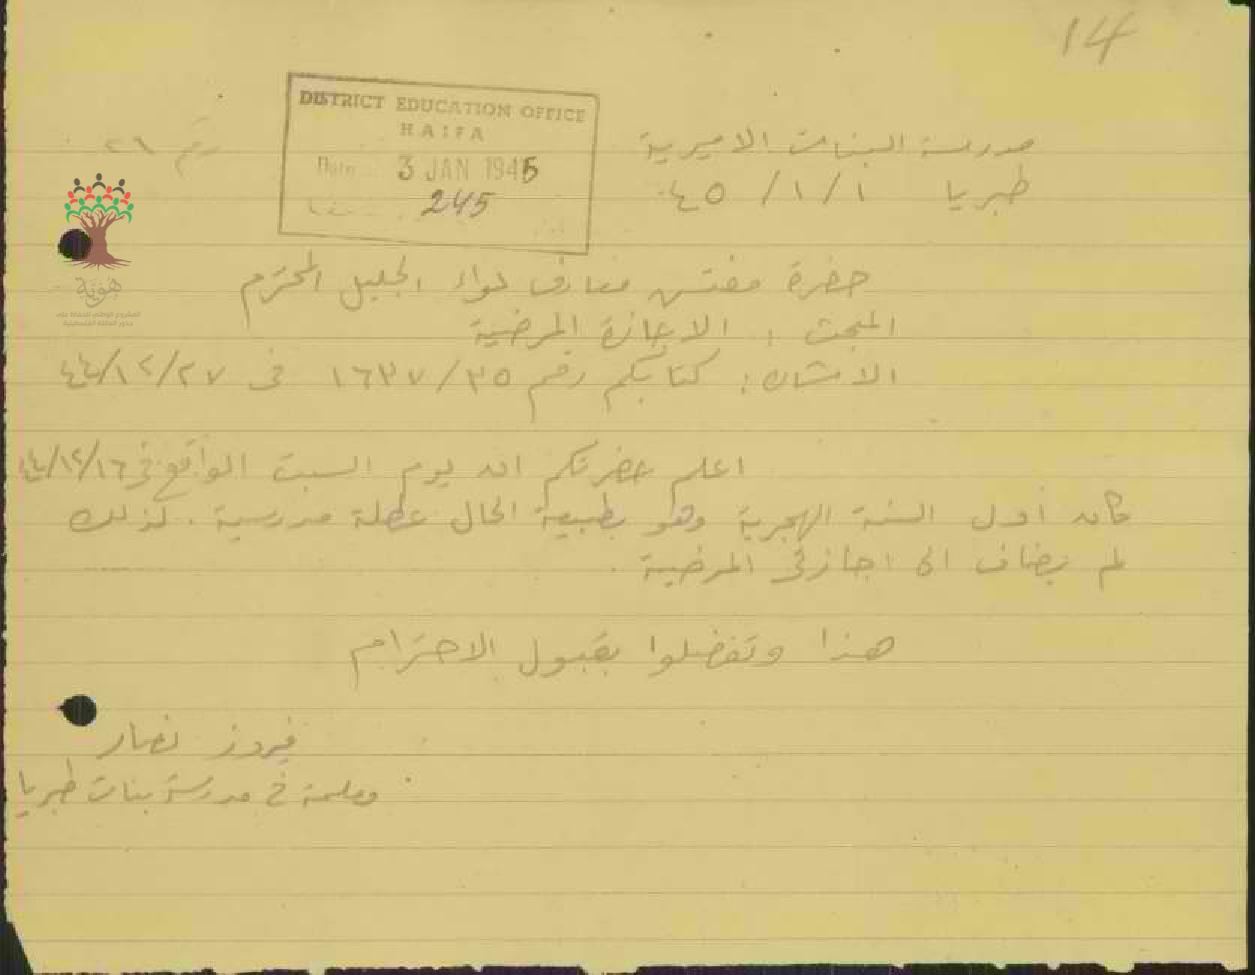 14
DISTRICT EDUCATION OFFICE
HAIFA
Date 3 JAN 1945
245
رقم ٢٦
مدرسة البنات الاميرية
طبريا ١/١/٤٥
حضرة مفتش معارف لواء الجليل المحترم
المبحث : الاجازة المرضية
الاشارة : كتابكم رقم ١٦٣٧/٣٥ في ٤٤/١٢/٢٧
اعلم حضرتكم انه يوم السبت الواقع في ٤٤/١٢/١٦
كان اول السنة الهجرية وهو بطبيعة الحال عطلة مدرسية . لذلك
لم يضاف الى اجازتي المرضية
هذا وتفضلوا بقبول الاحترام
فيروز نصار
معلمة في مدرسة بنات طبريا
هوية
المشروع الوطني للحفاظ على
جذور العائلة الفلسطينية